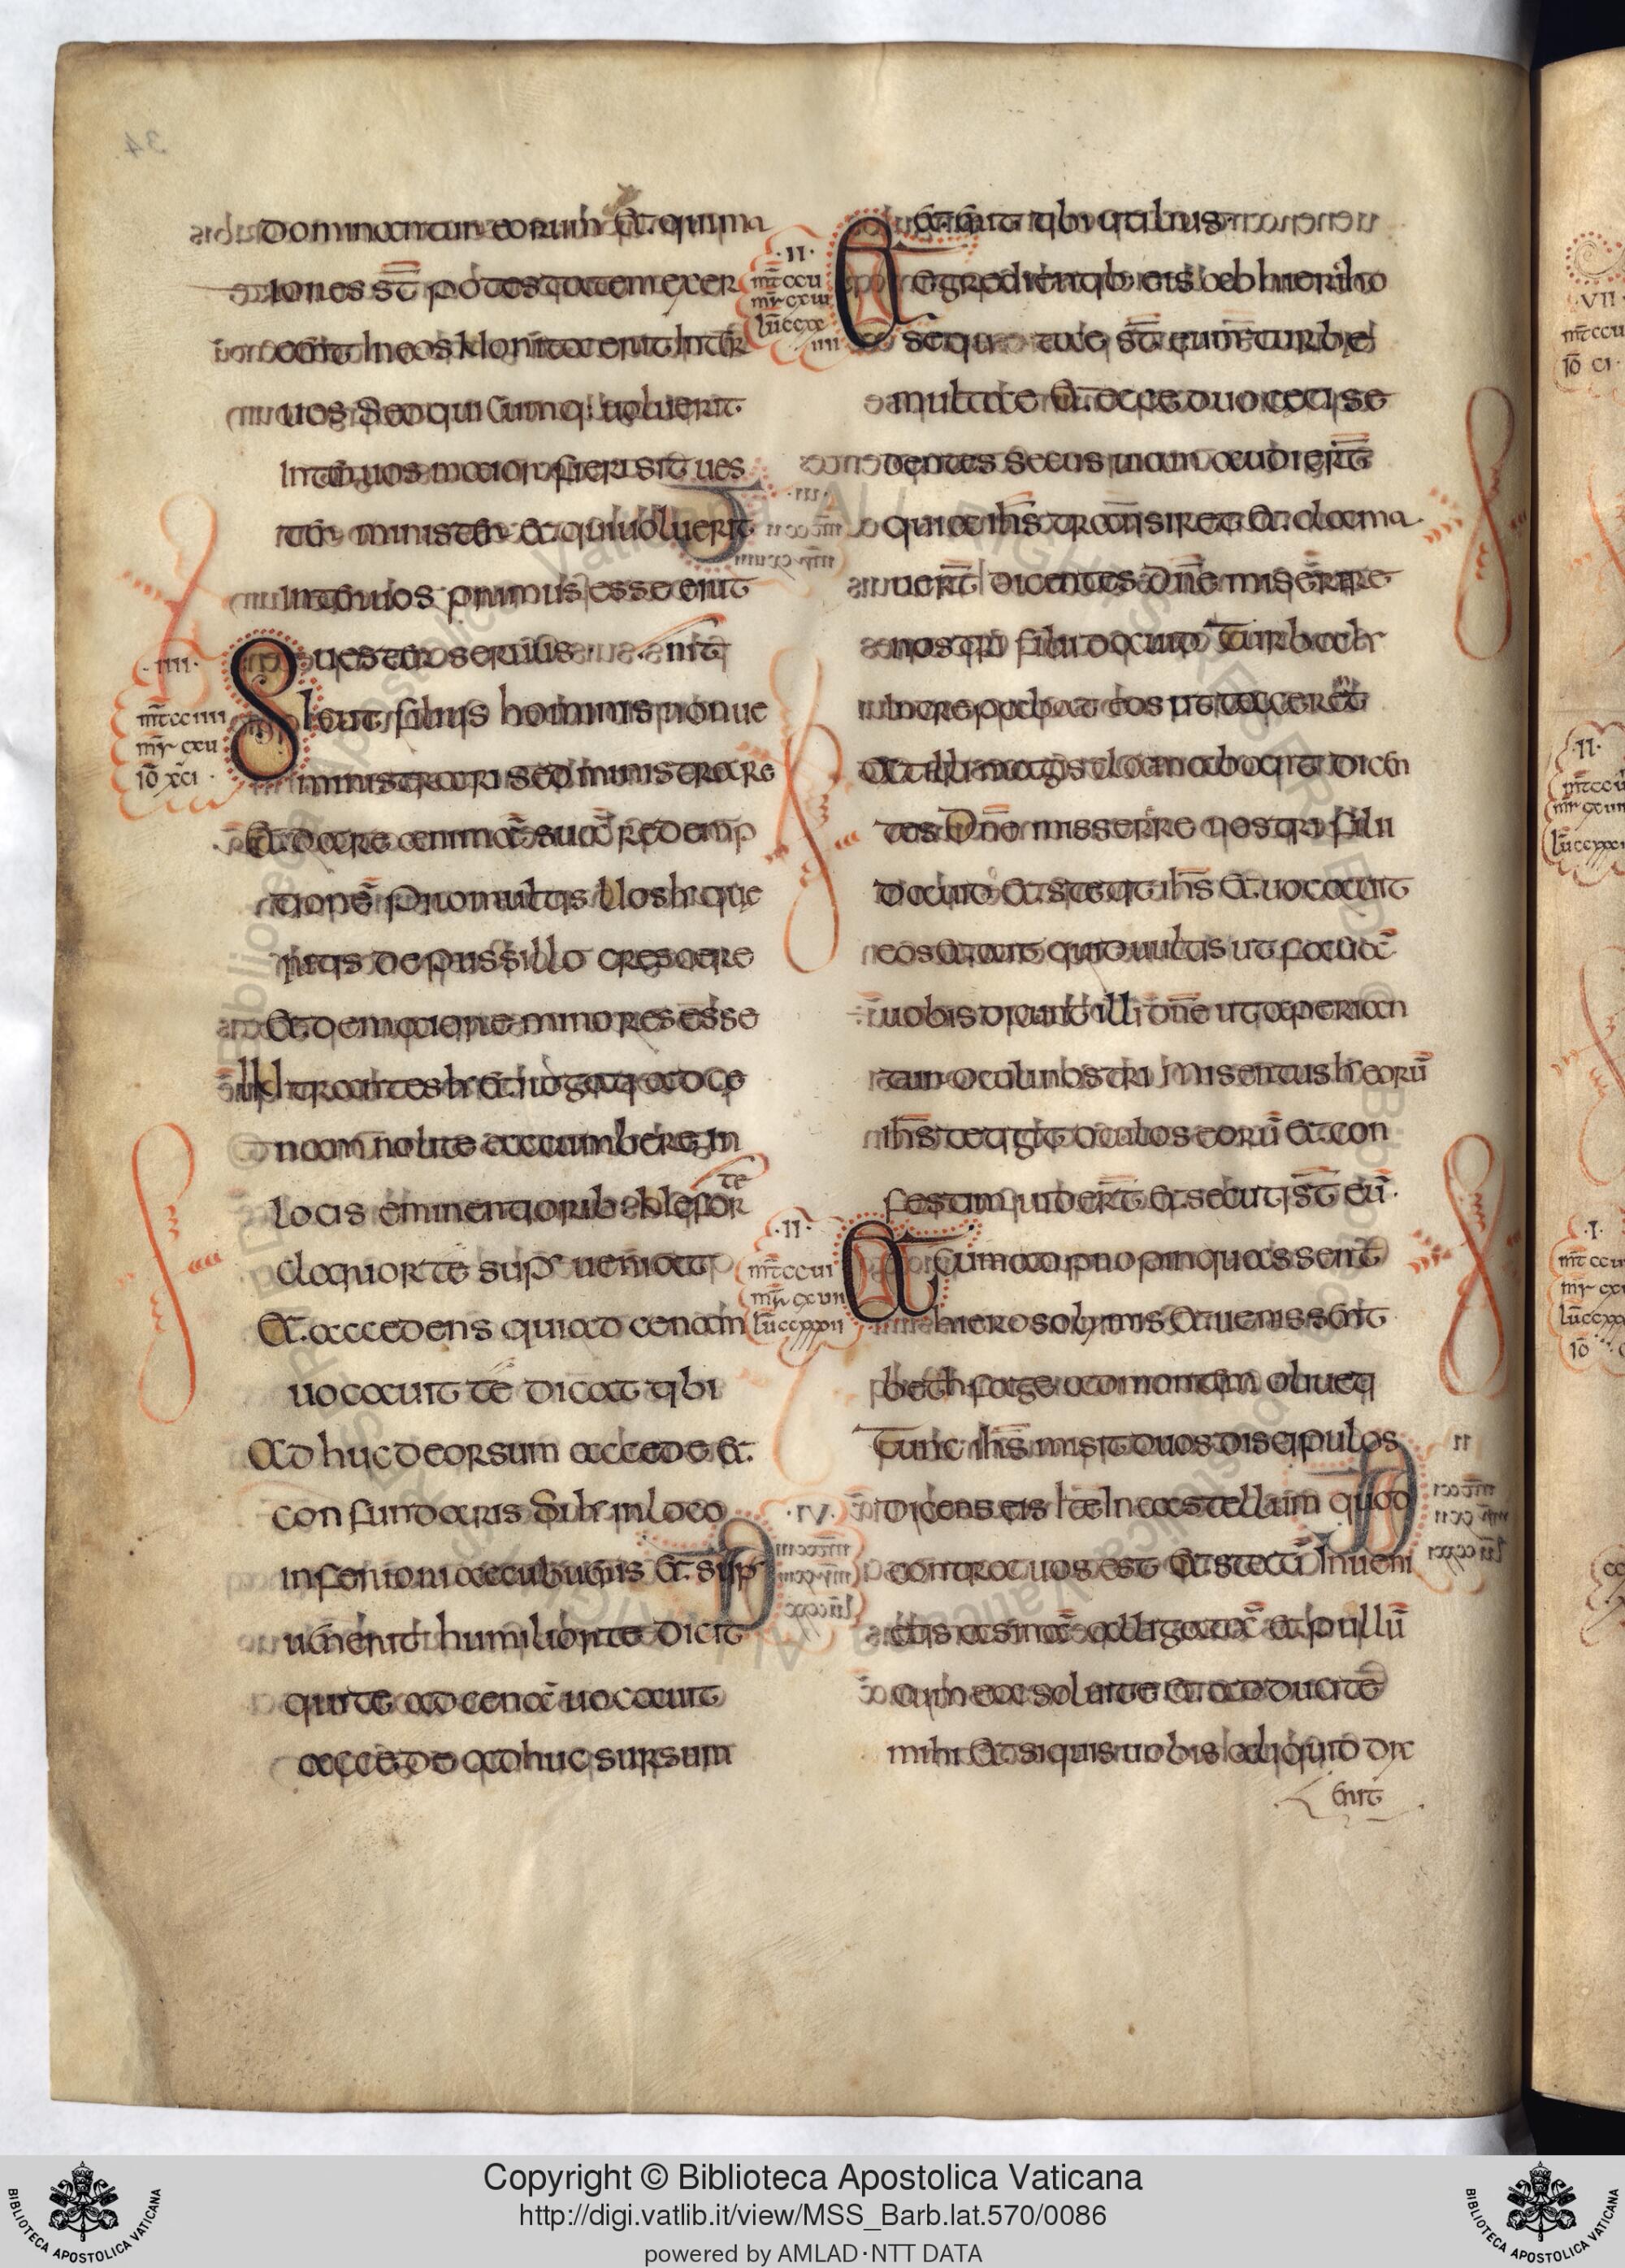 dominantur eorum Et qui ma
iores st̄ potestatem exer
cent In eos Non ita erit Int̄
uos Sed qui cumq; uoluerit
Inter uos maior fieri sit ues
ter minister et qui uoluerit
Inter uos primus esse erit
uester seruus
Sicut filius hominis non ue
nit
ministrari sed ministrare
Et dare animā suā redemp
tionē pro multis Uos h̄ que
ritis de pussillo crescere
Et de maiore minores esse
Intrantes h̄ et rogati ad ce
nam nolite accumbere in
locis eminentiorib; Ne for
te
clarior te sup ueniat
Et accedens qui ad cenam
uocauit te dicat tibi
Ad huc deorsum accede et
confundaris Si h̄ in loco
inferiori accubueris et sup
uenerit humilior te dicit
qui te ad cenā uocauit
accede ad huc sursum
et erit tibi utilius
Et egredientib; eis ab hiericho
secutae st̄ eum turbae
multae Et ecce duo ceci se
dentes secus uiam audiert̄
quia ih̄s transiret et clama
uert̄ dicentes Dn̄e miserere
nostri fili dauid Turba h̄
increpabat eos ut tacerēt
At illi magis clamabant dicen
tes Dn̄e misserere nostri fili
dauid Et stetit ih̄s et uocauit
eos et ait quid uultis ut faciā
uobis dicunt illi dn̄e ut aperian
tur oculi nostri Misertus h̄ eorū
ih̄s tetigit oculos eorū et con
festim uidert̄ et secuti st̄ eū.
Et cum ad propinquassent
hierosolymis et uenissent
bethfage ad montem oliueti
Tunc ih̄s misit duos discipulos
dicens eis Ite In castellum quod
contra uos est Et statī Inueni
etis asinā alligatā et pullū
cum ea soluite et adducite
mihi Et si quis uobis aliquid dix
erit
·II·
mt̄ ccu
mr̄ cxui
lūc cxx
IIII
·IIII·
mt̄ cciiii
mr̄ cxu
iō xci·
·II·
mt̄ ccui
mr̄ cxuii
lūc cxxxii
Copyright © Biblioteca Apostolica Vaticana
http://digi.vatlib.it/view/MSS_Barb.lat.570/0086
powered by AMLAD·NTT DATA
BIBLIOTECA APOSTOLICA VATICANA
BIBLIOTECA APOSTOLICA VATICANA